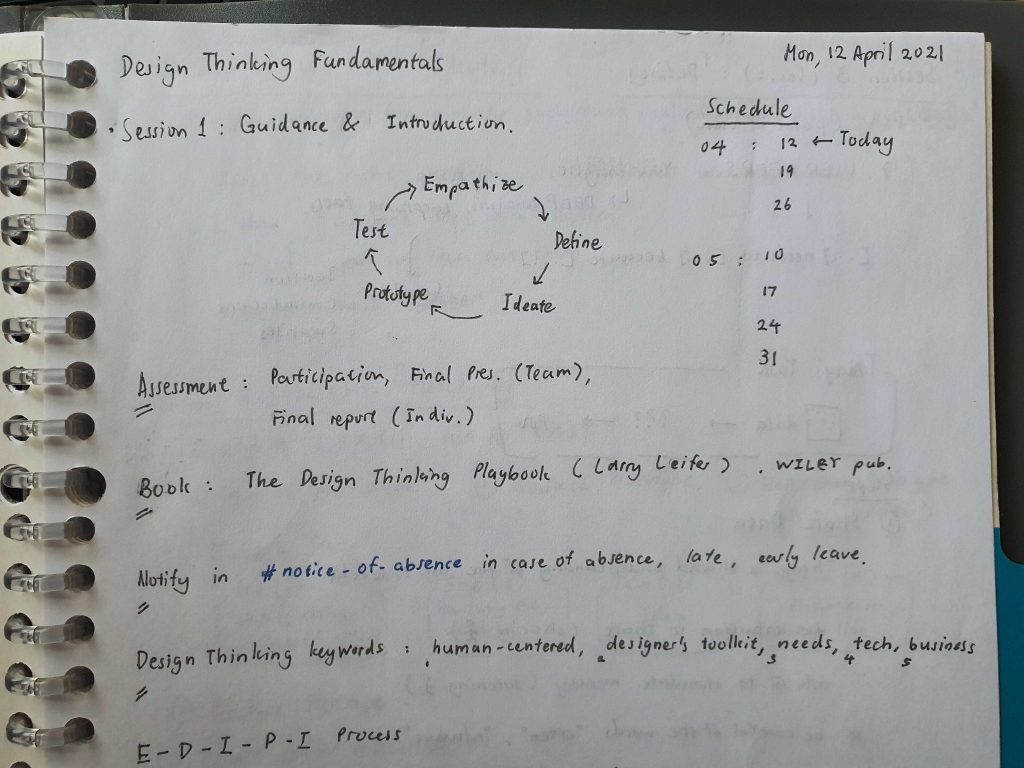 Mon, 12 April 2021
Design Thinking Fundamentals
Session 1 : Guidance & Introduction.
Schedule
04 : 12 ← Today
19
26
05 : 10
17
24
31
Empathize
Define
Ideate
Prototype
Test
Assessment : Participation, Final Pres. (Team),
Final report (Indiv.)
Book : The Design Thinking Playbook (Larry Leifer) . WILEY pub.
Notify in #notice-of-absence in case of absence, late, early leave.
Design Thinking keywords : 1 human-centered, 2 designer's toolkit, 3 needs, 4 tech, 5 business
E-D-I-P-I Process